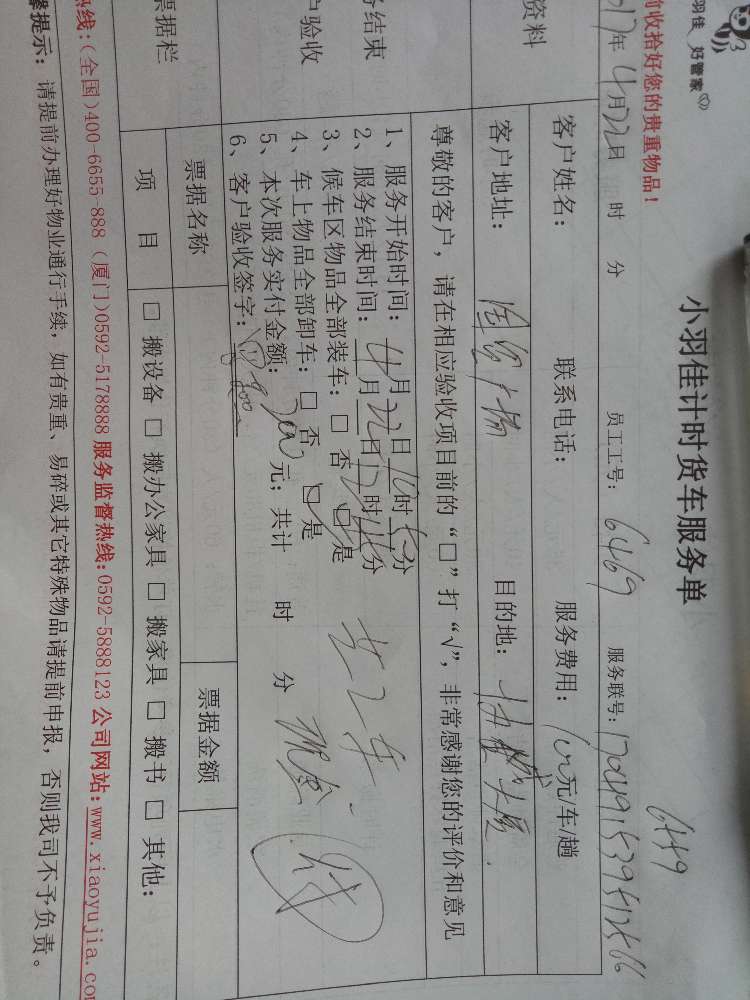 小羽佳计时货车服务单
羽佳 好管家
前收拾好您的贵重物品！
6449
年4月22日 时 分 员工工号：6469 服务联号：
资料 客户姓名： 联系电话： 服务费用：100元/车/趟
客户地址： 目的地：
尊敬的客户，请在相应验收项目前的“□”打“√”，非常感谢您的评价和意见
务结束
户验收
1、服务开始时间：4月22日10时 分
2、服务结束时间：4月22日12时 分
3、候车区物品全部装车：□ 否 □ 是 共2车
4、车上物品全部卸车：□ 否 □ 是
5、本次服务实付金额：200元；共计 时 分 现金
6、客户验收签字：
票据栏 票据名称 票据金额
项 目 □ 搬设备 □ 搬办公家具 □ 搬家具 □ 搬书 □ 其他：
热线：(全国)400-6655-888 (厦门)0592-5178888 服务监督热线：0592-5888123 公司网站：www.xiaoyujia.co
馨提示：请提前办理好物业通行手续，如有贵重、易碎或其它特殊物品请提前申报，否则我司不予负责。